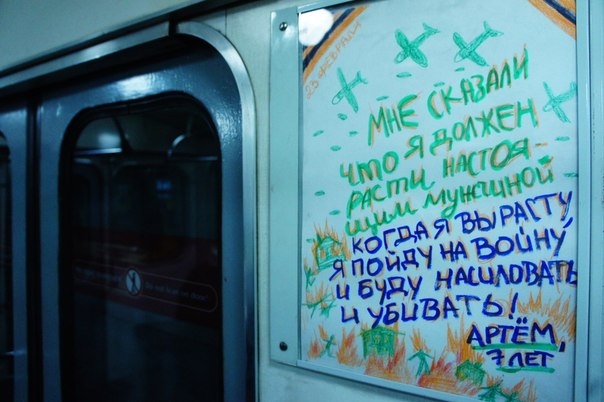 23 ФЕВРАЛЯ
МНЕ СКАЗАЛИ
ЧТО Я ДОЛЖЕН
РАСТИ НАСТОЯ-
ЩИМ МУЖЧИНОЙ
КОГДА Я ВЫРАСТУ,
Я ПОЙДУ НА ВОЙНУ,
И БУДУ НАСИЛОВАТЬ
И УБИВАТЬ!
АРТЁМ,
7 ЛЕТ